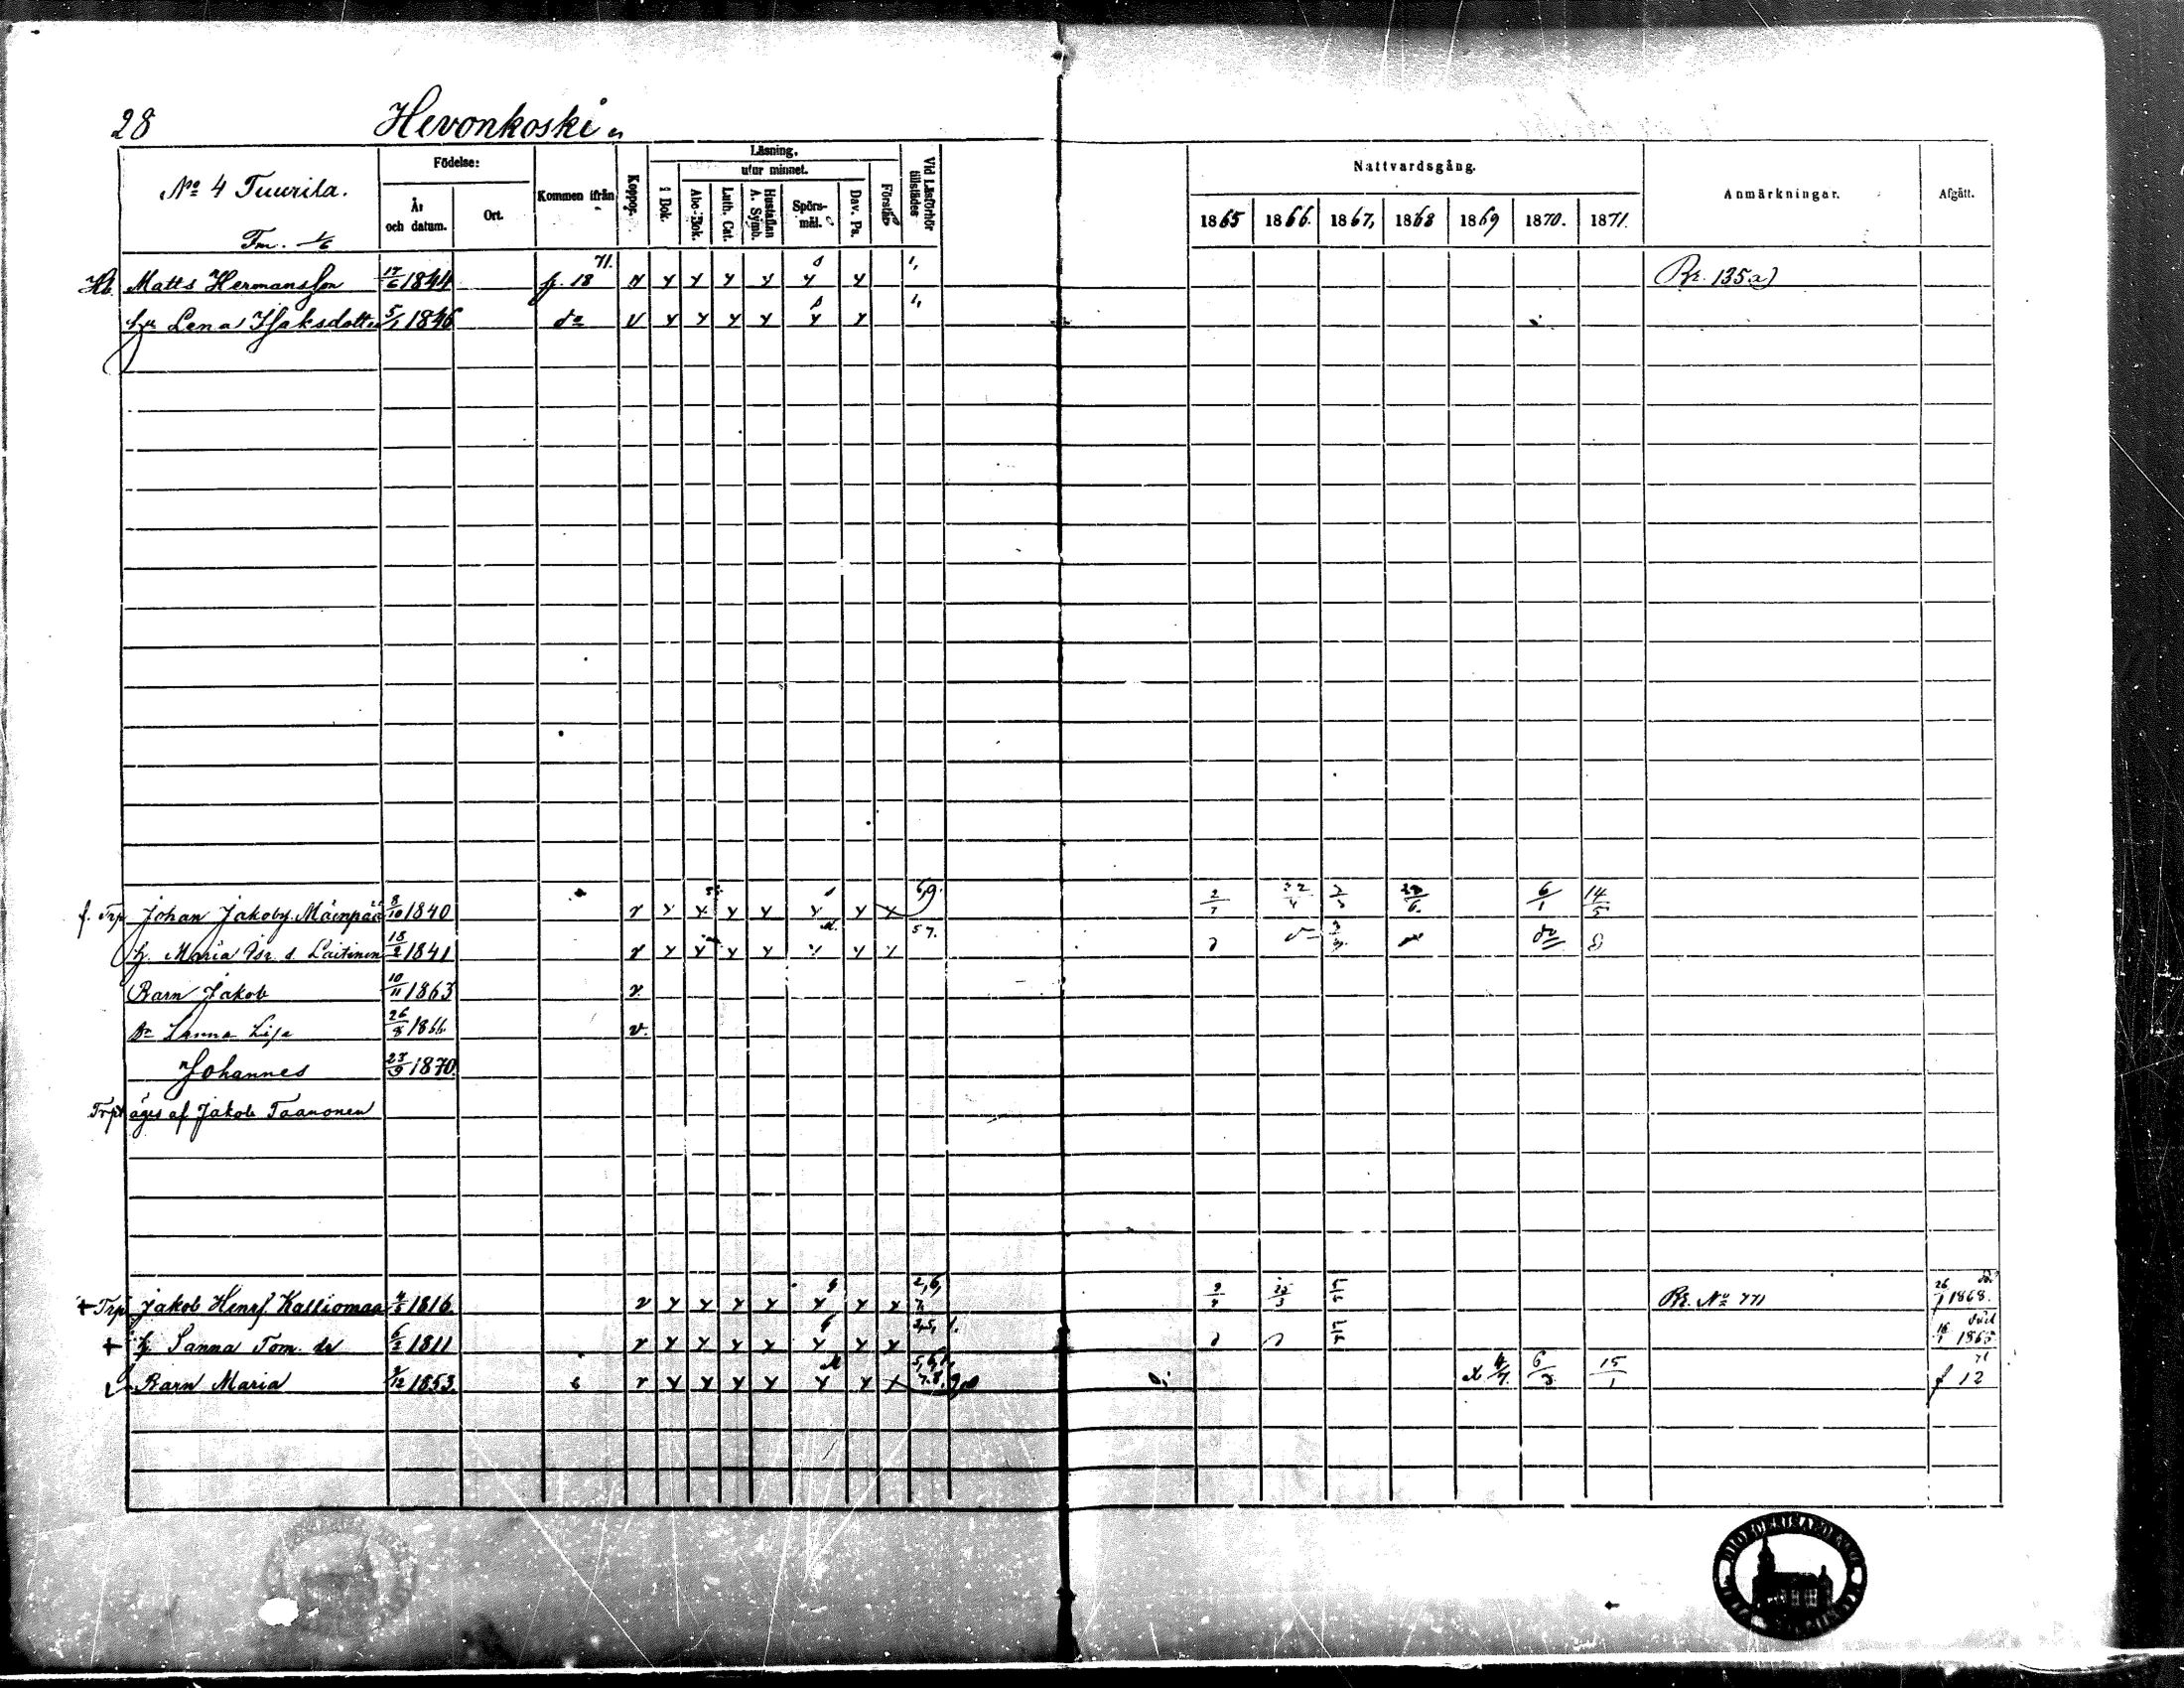 28 Hevonkoski
No 4 Tuurila.
Tm. 1/6
Födelse: År och datum. Ort. Kommen ifrån Koppor. Läsning. i Bok. utur minnet. Abc-Bok. Luth. Cat. Hustaflan A. Symb. Spörs-mål. Dav. Ps. Förstår Vid Läsförhör tillstädes Nattvardsgång. 1865 1866. 1867, 1868 1869 1870. 1871. Anmärkningar. Afgått.
Matts Hermansson 17/6 1844 f. 18 71. v y y y y y y 1, Br. 135 a)
hu Lena Isaksdotter 5/1 1846 do v y y y y y y 1,
f. Trp Johan Jakobs. Mäenpää 8/10 1840 v y y y y y y y 6,9. 2/7 22/4 6/1 14/5
h. Maria Isr. d. Laitinen 18/2 1841 v y y y y y y y 57. do
Barn Jakob 10/11 1863 v.
Sanna Lisa 26/8 1866 v.
Johannes 23/9 1870
Trpt äges af Jakob Taanonen
+ Trp Jakob Henrs. Kalliomaa 4/5 1816 v y y y y y y y 2,6, 7. Br. No 771 26/1 1868.
+ h. Sanna Tom. dr 6/2 1811 v y y y y y y y 16/1 1865
Barn Maria 1853. v y y y y y y y 5,6, 7.8. 6/3 15/1 f 12 71